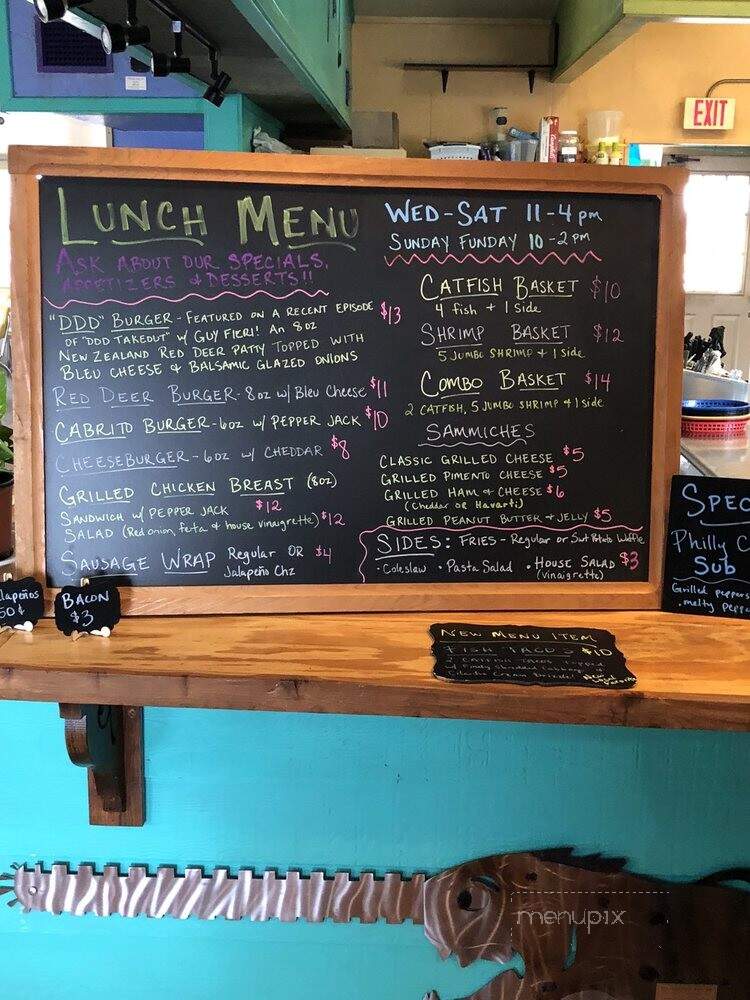 EXIT
LUNCH MENU
ASK ABOUT OUR SPECIALS,
APPETIZERS & DESSERTS!!
"DDD" BURGER - FEATURED ON A RECENT EPISODE $13
OF "DDD TAKEOUT" W/ GUY FIERI! AN 8OZ
NEW ZEALAND RED DEER PATTY TOPPED WITH
BLEU CHEESE & BALSAMIC GLAZED ONIONS
RED DEER BURGER - 8OZ W/ BLEU CHEESE $11
CABRITO BURGER - 6OZ W/ PEPPER JACK $10
CHEESEBURGER - 6OZ W/ CHEDDAR $8
GRILLED CHICKEN BREAST (8OZ)
SANDWICH W/ PEPPER JACK $12
SALAD (Red onion, feta & house vinaigrette) $12
SAUSAGE WRAP Regular OR $4
Jalapeño Chz
WED-SAT 11-4 pm
SUNDAY FUNDAY 10-2 PM
CATFISH BASKET $10
4 fish + 1 side
SHRIMP BASKET $12
5 JUMBO SHRIMP + 1 side
COMBO BASKET $14
2 CATFISH, 5 JUMBO SHRIMP + 1 side
SAMMICHES
CLASSIC GRILLED CHEESE $5
GRILLED PIMENTO CHEESE $5
GRILLED HAM & CHEESE $6
(Cheddar OR Havarti)
GRILLED PEANUT BUTTER & JELLY $5
SIDES: FRIES - Regular or Swt Potato Waffle
· Coleslaw · Pasta Salad · HOUSE SALAD $3
(vinaigrette)
SPEC
Philly C
Sub
Grilled peppers
melty Peppe
alapeños
50¢
BACON
$3
NEW MENU ITEM
FISH TACOS $10
2 CATFISH TACOS topped
Cilantro Cream
menupix